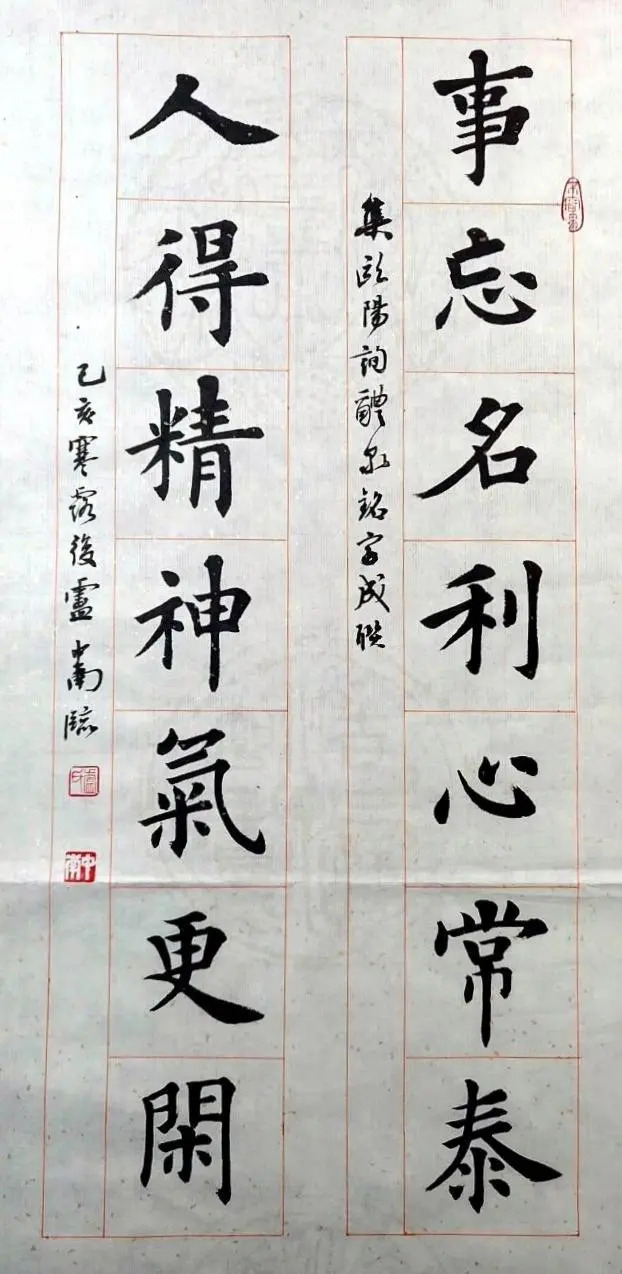 事忘名利心常泰
集欧陽詢醴泉銘字成聯
人得精神氣更閑
乙亥寒露後盧中南臨
中南